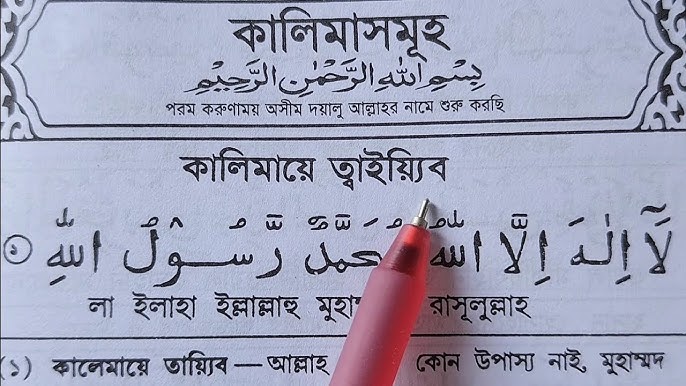 কালিমাসমূহ
بِسْمِ اللهِ الرَّحْمٰنِ الرَّحِيْمِ
পরম করুণাময় অসীম দয়ালু আল্লাহর নামে শুরু করছি
কালিমায়ে ত্বাইয়্যিব
لَآ اِلٰهَ اِلَّا اللهُ مُحَمَّدٌ رَّسُوْلُ اللهِ
লা ইলাহা ইল্লাল্লাহু রাসূলুল্লাহ
(১) কালেমায়ে তায়্যিব — আল্লাহ কোন উপাস্য নাই, মুহাম্মদ